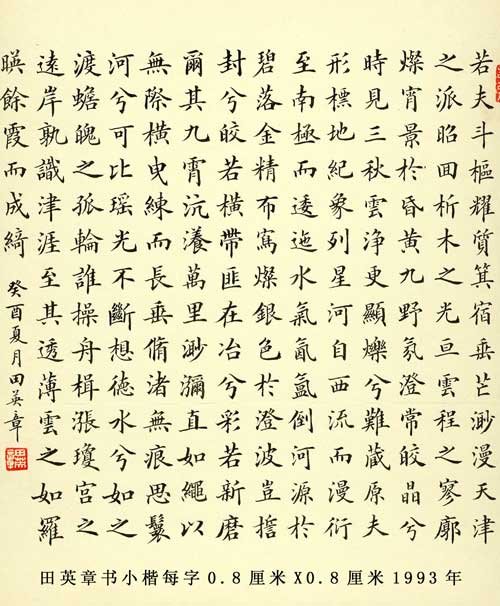 若夫斗樞耀質箕宿垂芒渺漫天津
之派昭回析木之光亘雲程之寥廓
燦宵景於昏黄九野氛澄常皎晶兮
時見三秋雲浄更顯爍兮難藏原夫
形標地紀象列星河自西流而漫衍
至南極而逶迤水氣氤氲倒河源於
碧落金精布寫燦銀色於澄波豈
封兮皎若横帶匪在冶兮彩若新磨
爾其九霄沆瀁萬里渺瀰直如繩以
無際横曳練而長垂脩渚無痕思
河兮可比瑶光不斷想德水兮如之
渡蟾魄之孤輪誰操舟楫漲瓊宫之
遠岸孰識津涯至其透薄雲之如羅
暎餘霞而成綺
癸酉夏月田英章
田英章书小楷每字0.8厘米X0.8厘米1993年